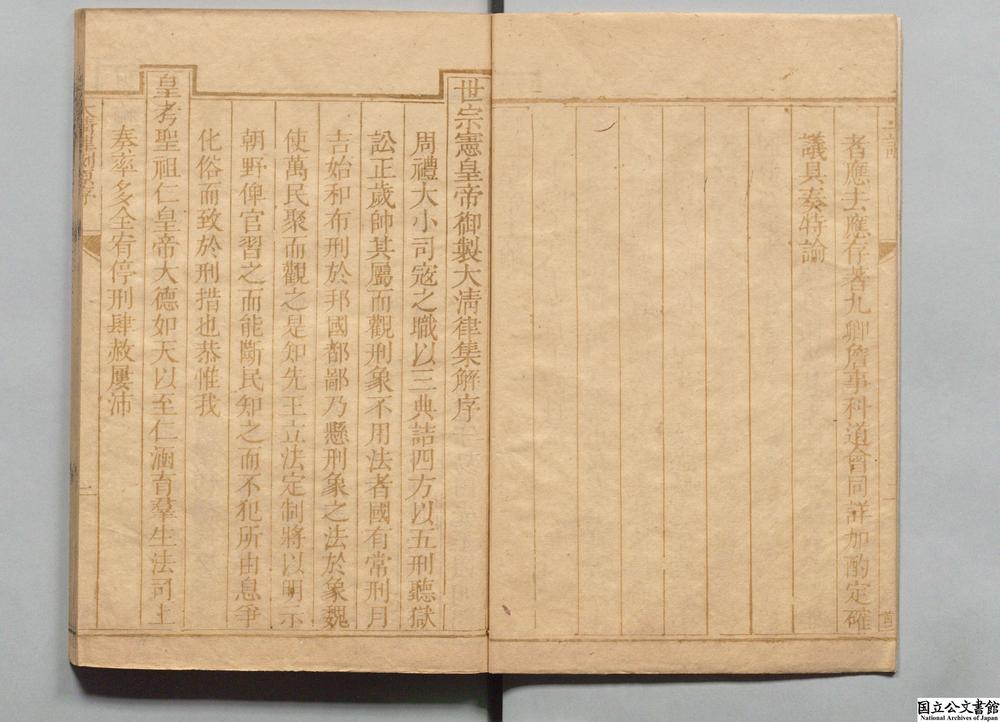 者應去應存著九卿詹事科道會同詳加酌定確
議具奏特諭
世宗憲皇帝御製大清律集解序
周禮大小司寇之職以三典詰四方以五刑聽獄
訟正歲帥其屬而觀刑象不用法者國有常刑月
吉始和布刑於邦國都鄙乃懸刑象之法於象魏
使萬民聚而觀之是知先王立法定制將以明示
朝野俾官習之而能斷民知之而不犯所由息爭
化俗而致於刑措也恭惟我
皇考聖祖仁皇帝大德如天以至仁涵育羣生法司上
奏率多全宥停刑肆赦屢沛
一
国立公文書館
National Archives of Japan